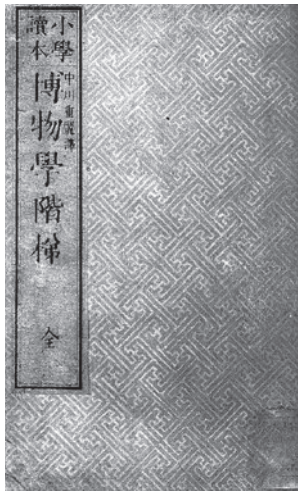 小學
讀本
中川重麗譯
博物學階梯
全